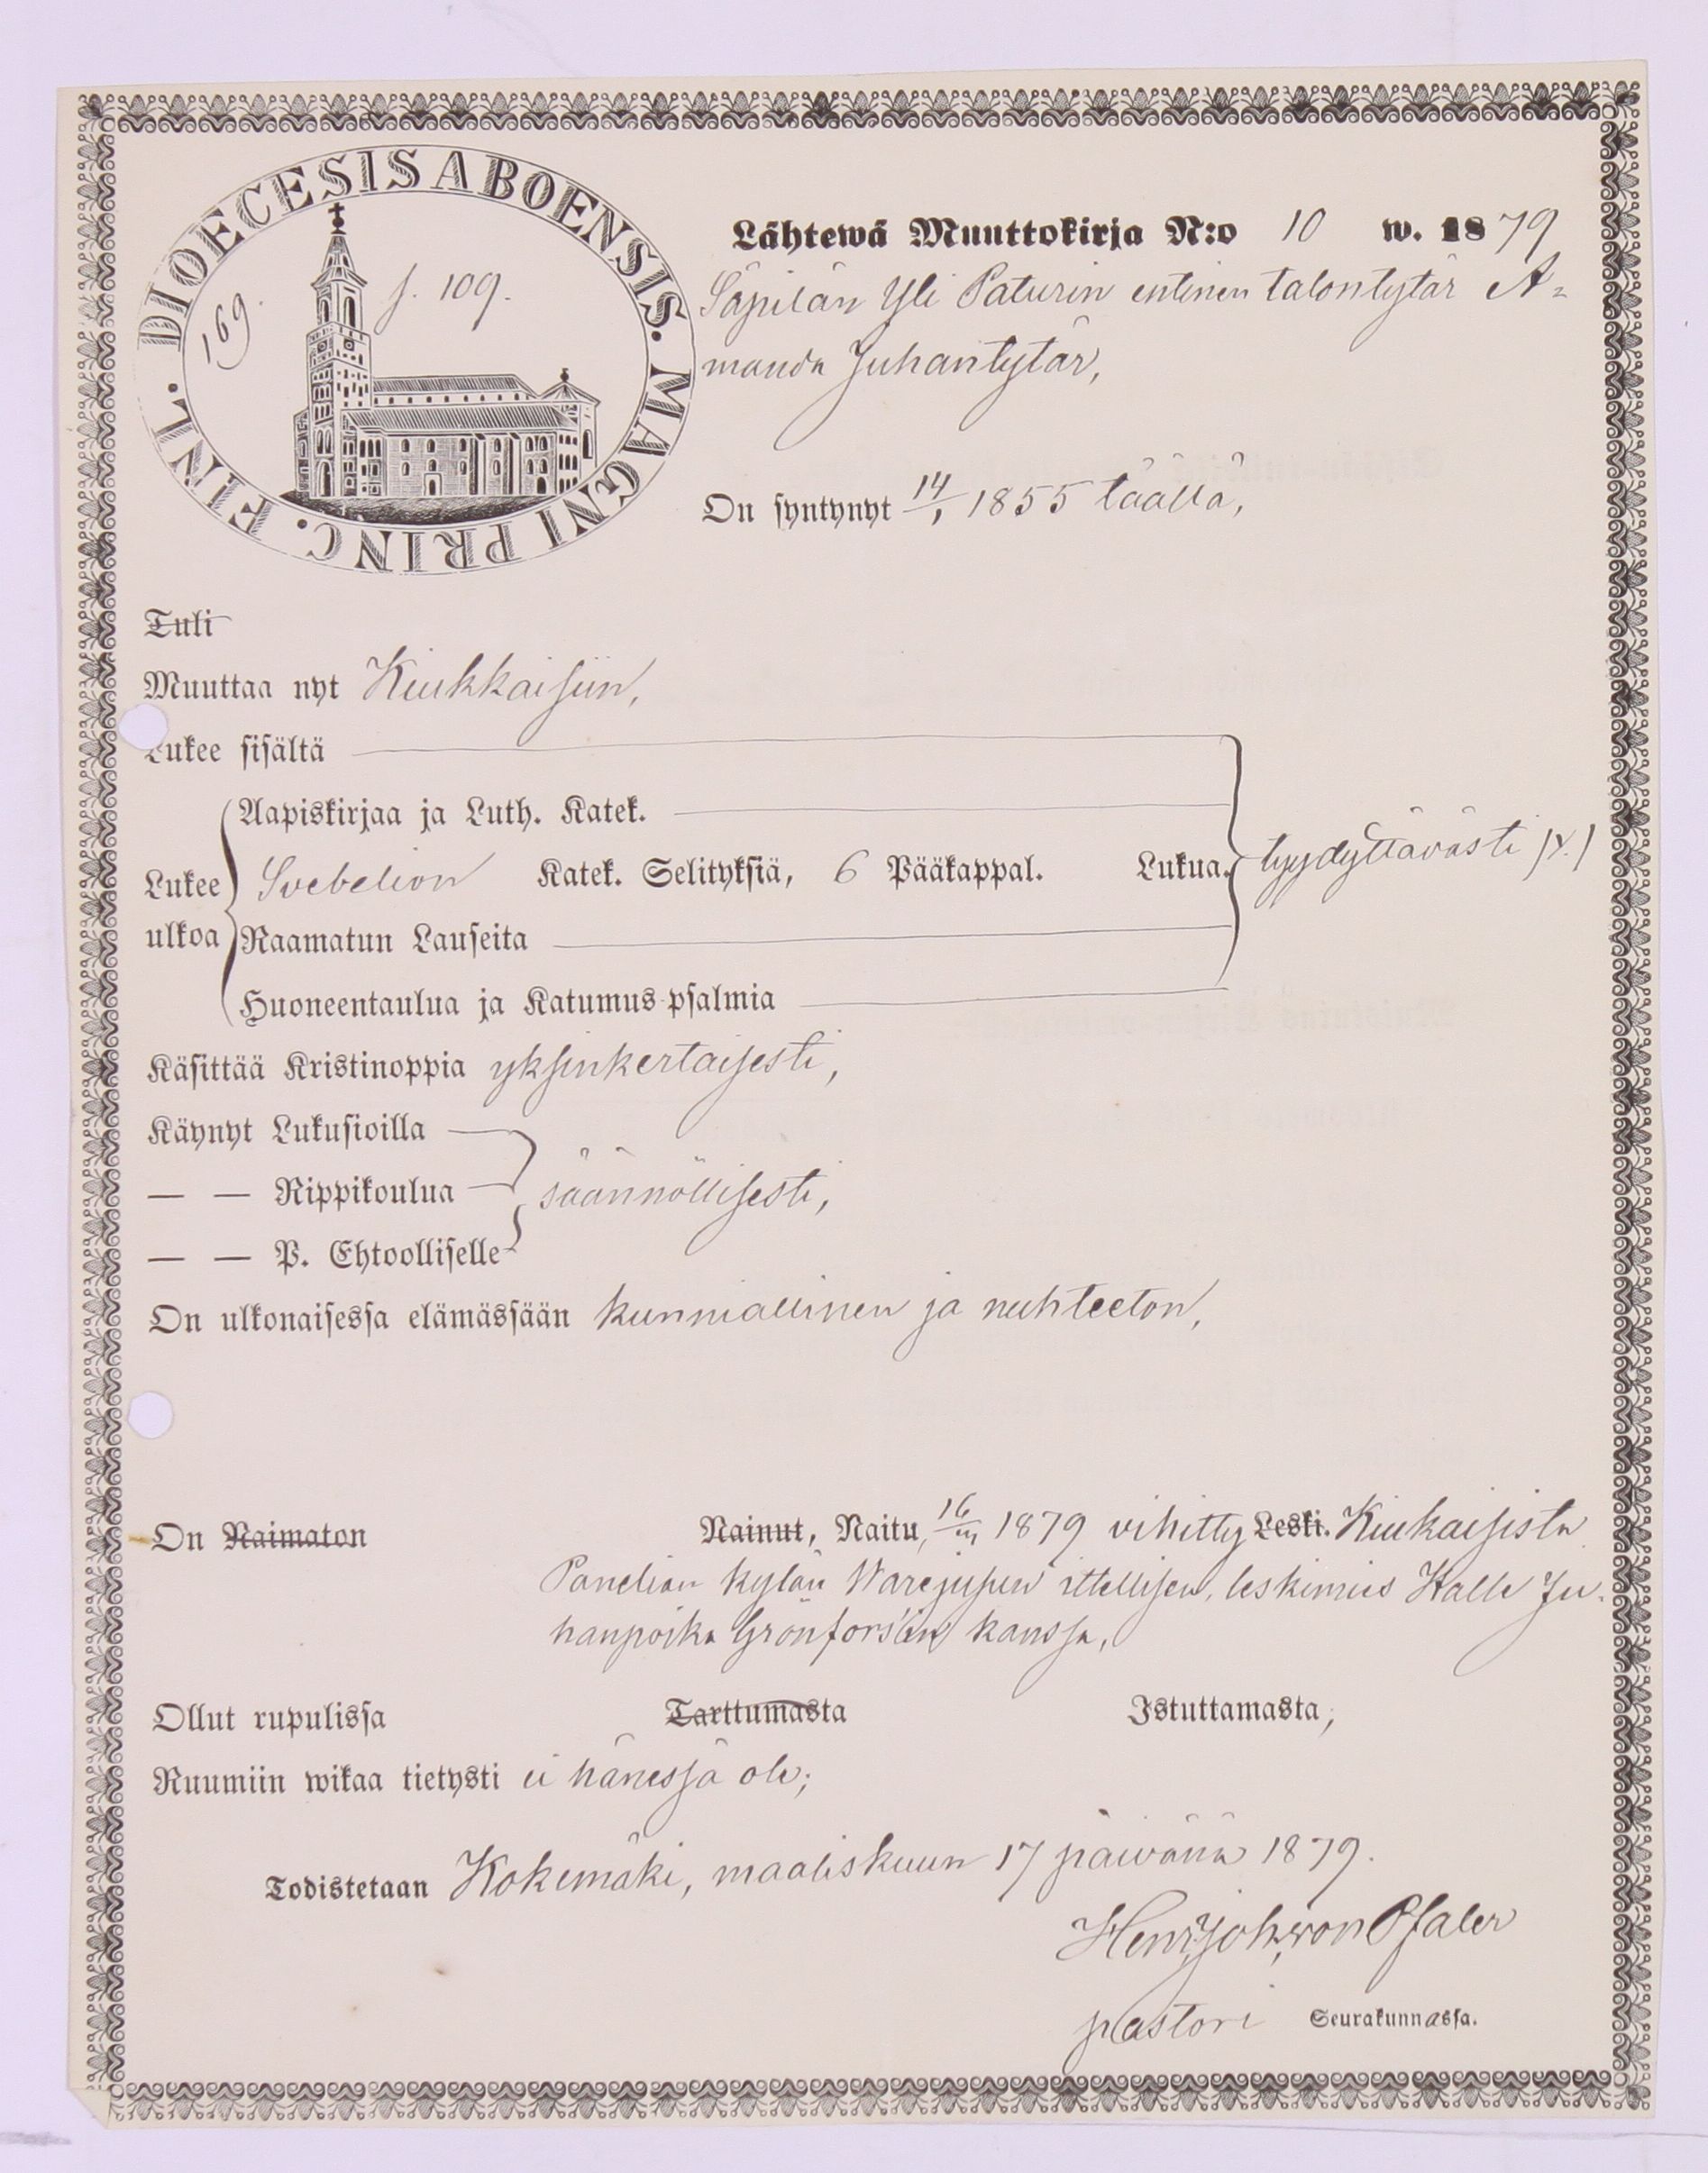 DIOECESIS ABOENSIS. MAGNI PRINC. FINL.
169.
f. 109.
Lähtewä Muuttokirja N:o 10 w. 1879
Säpilän Yli Paturin entinen talontytär A-
manda Juhantytär,
On syntynyt 14/1 1855 täällä,
Tuli
Muuttaa nyt Kiukkaisiin,
Lukee sisältä
Aapiskirjaa ja Luth. Katek.
Lukee ulkoa Svebelion Katek. Selityksiä, 6 Pääkappal. Lukua. tyydyttävästi
Raamatun Lauseita
Huoneentaulua ja Katumus-psalmia
Käsittää Kristinoppia yksinkertaisesti,
Käynyt Lukusioilla
— — Rippikoulua säännöllisesti,
— — P. Ehtoolliselle
On ulkonaisessa elämässään kunniallinen ja nuhteeton,
On Naimaton Nainut, Naitu, 16/III 1879 vihitty Leski. Kiukaisista
Panelian kylän itsellisen, leskimies Kalle Ju-
hanpoika Grönfors'in kanssa,
Ollut rupulissa Tarttumasta Istuttamasta,
Ruumiin wikaa tietysti ei hänessä ole;
Todistetaan Kokemäki, maaliskuun 17 päivänä 1879.
Henr. Joh. von Pfaler
pastori Seurakunnassa.